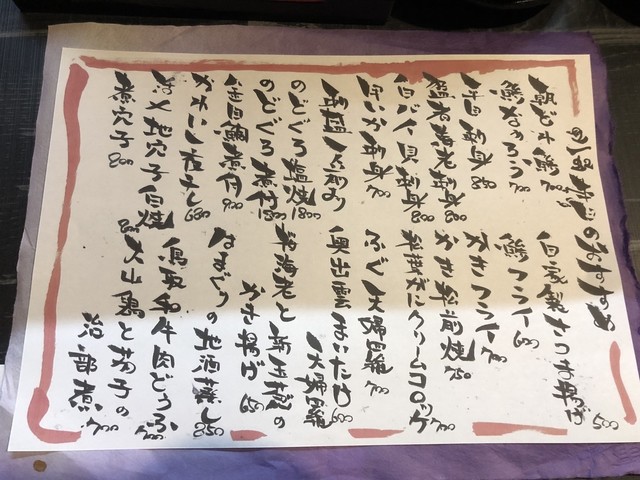 のおすすめ
鯵なめろう 700
平目刺身
猛者海老刺身 800
白バイ貝刺身 800
白いか刺身 700
のどぐろ塩焼 1800
のどぐろ煮付 1800
金目鯛煮付 900
かれい一夜干し 680
地穴子白焼 800
煮穴子 800
自家製さつま揚げ 500
鯵フライ 600
かきフライ 700
かき松前焼 750
松葉がにクリームコロッケ
ふぐ天婦羅 700
奥出雲まいたけ
天婦羅 600
海老と新玉葱の
かき揚げ 650
はまぐりの地酒蒸し 850
鳥取和牛肉どうふ
大山鶏と茄子の
治部煮 700